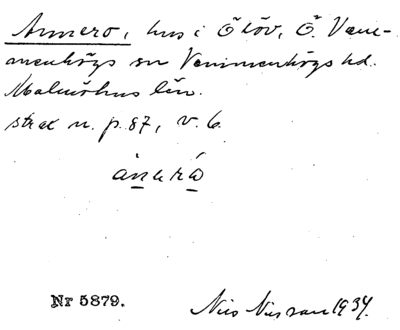 Annero, hus i Ö löv, Ö. Vem-
menhögs sn Vemmenhögs hd.
Malmöhus län.
strax n. p. 87, v. 6.
Nr 5879.
Nils Nilsson 1934.